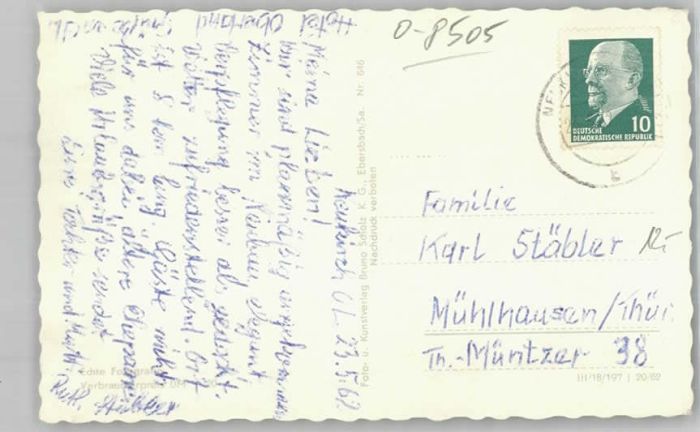 0-8505
Hotel Oberland
Neukirch OL 23.5.62
Meine Lieben!
wir sind planmäßig angekommen
Zimmer im Neubau, elegant
Verpflegung besser als gedacht.
Wetter zufriedenstellend. Ort
ist 8 km lang. Gäste nicht
für uns
Viele Urlaubsgrüße sendet
Eure Tochter und
Ruth Stäbler
Echte Fotografie
Foto- u. Kunstverlag Bruno Scholz K. G., Ebersbach/Sa. Nr. 646
Nachdruck verboten
DEUTSCHE
DEMOKRATISCHE REPUBLIK
10
Familie
Karl Stäbler
Mühlhausen/Thür.
Th.-Müntzer 38
III/18/197 | 20/62